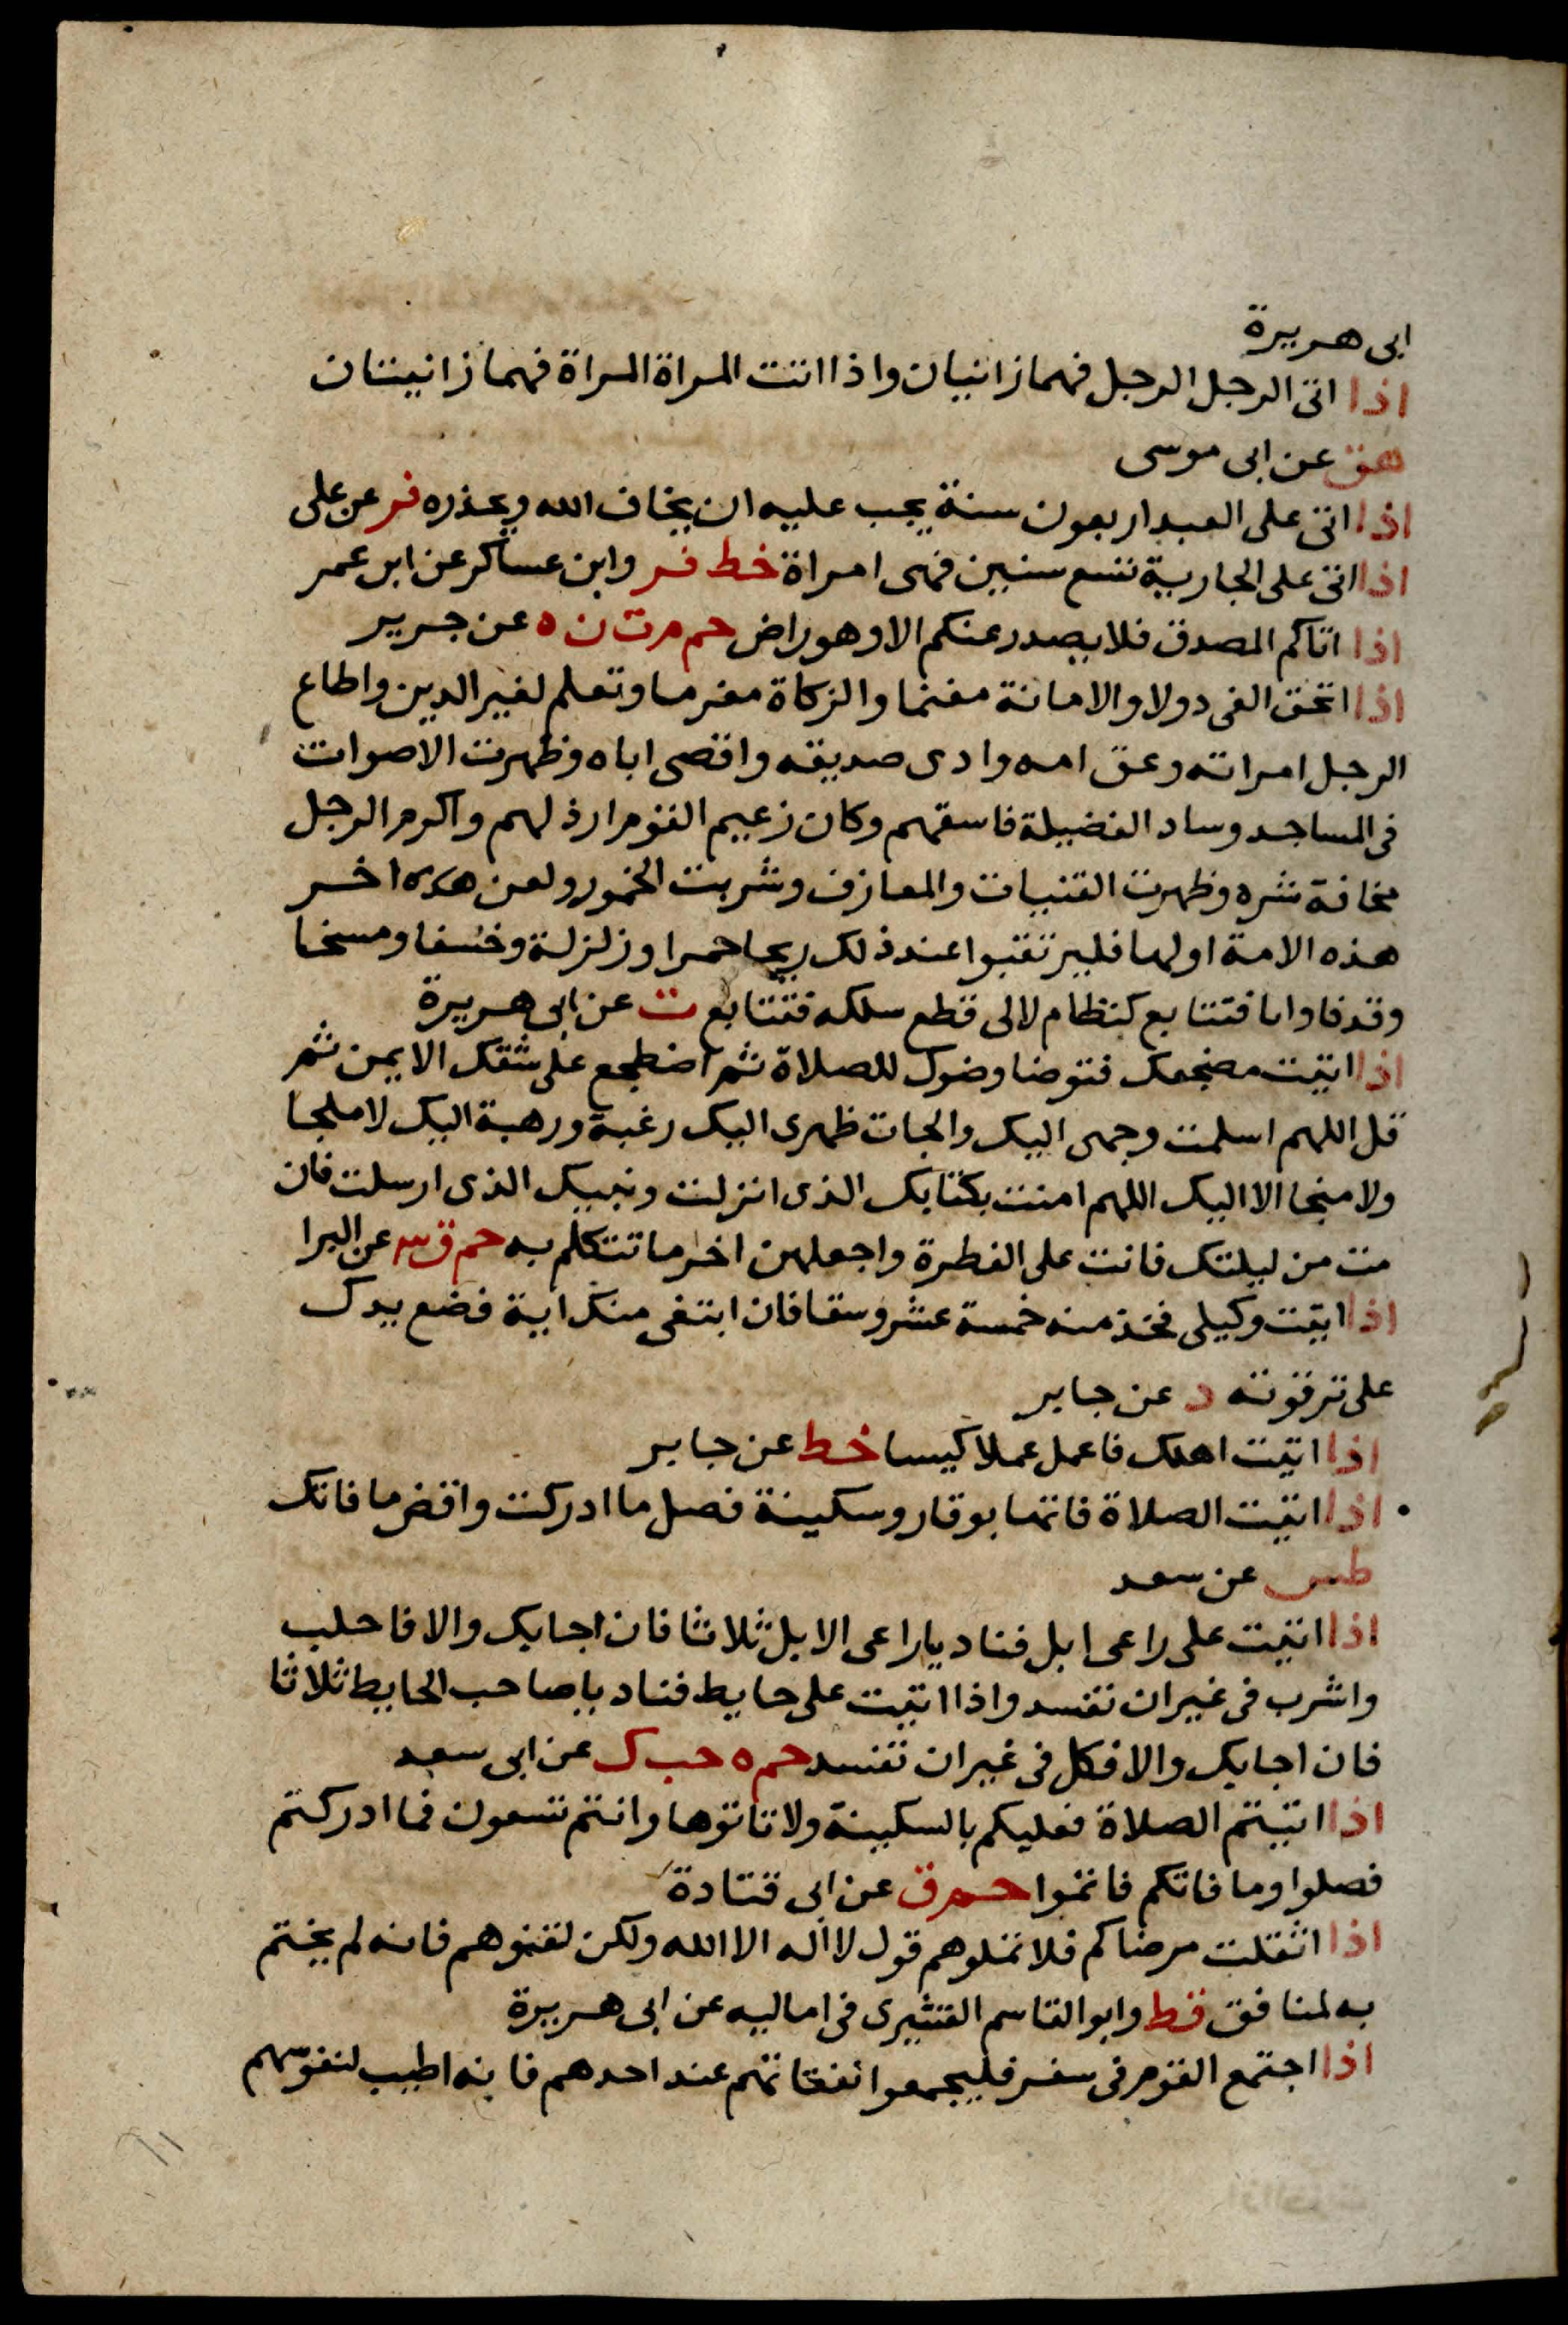 ابى هريرة
اذا اتى الرجل الرجل فهما زانيان واذا اتت المراة المراة فهما زانيتان
هق عن ابى موسى
اذا اتى على العبد اربعون سنة يجب عليه ان يخاف الله ويحذره فر عن على
اذا اتى على الجارية تسع سنين فهى امراة خط فر وابن عساكر عن ابن عمر
اذا اتاكم المصدق فلا يصدر عنكم الا وهو راض حم م ت ن ه عن جرير
اذا اتخذ الفى دولا والامانة مغنما والزكاة مغرما وتعلم لغير الدين واطاع
الرجل امراته وعق امه وادى صديقه واقصى اباه وظهرت الاصوات
فى المساجد وساد الفضيلة فاسقهم وكان زعيم القوم ارذلهم واكرم الرجل
مخافة شره وظهرت القنيات والمعازف وشربت الخمور ولعن هذه اخر
هذه الامة اولها فليرتقبوا عند ذلك ريحا حمرا وزلزلة وخسفا ومسخا
وقذفا وايا فتتابع كنظام لالى قطع سلكه فتتابع ت عن ابى هريرة
اذا اتيت مضجعك فتوضا وضوك للصلاة ثم اضطجع على شقك الايمن ثم
قل اللهم اسلمت وجهى اليك والجات ظهرى اليك رغبة ورهبة اليك لا ملجا
ولا منجا الا اليك اللهم امنت بكتابك الذى انزلت ونبيك الذى ارسلت فان
مت من ليلتك فانت على الفطرة واجعلهن اخر ما تتكلم به حم ق عن البرا
اذا اتيت وكيلى فخذ منه خمسة عشر وسقا فان ابتغى منك اية فضع يدك
على ترقوته د عن جابر
اذا اتيت اهلك فاعمل عملا كيسا خط عن جابر
اذا اتيت الصلاة فاتها بوقار وسكينة فصل ما ادركت واقض ما فاتك
طس عن سعد
اذا اتيت على راعى ابل فناد يا راعى الابل ثلاثا فان اجابك والا فاحلب
واشرب فى غير ان تفسد واذا اتيت على حايط فناد يا صاحب الحايط ثلاثا
فان اجابك والا فكل فى غير ان تفسد حم ه حب ك عن ابى سعيد
اذا اتيتم الصلاة فعليكم بالسكينة ولا تاتوها وانتم تسعون فما ادركتم
فصلوا وما فاتكم فاتموا حم ق عن ابى قتادة
اذا اثقلت مرضاكم فلا تملوهم قول لا اله الا الله ولكن لقنوهم فانه لم يختم
به لمنافق قط وابو القاسم القشيرى فى اماليه عن ابى هريرة
اذا اجتمع القوم فى سفر فليجمعوا نفقاتهم عند احدهم فانه اطيب لنفوسهم